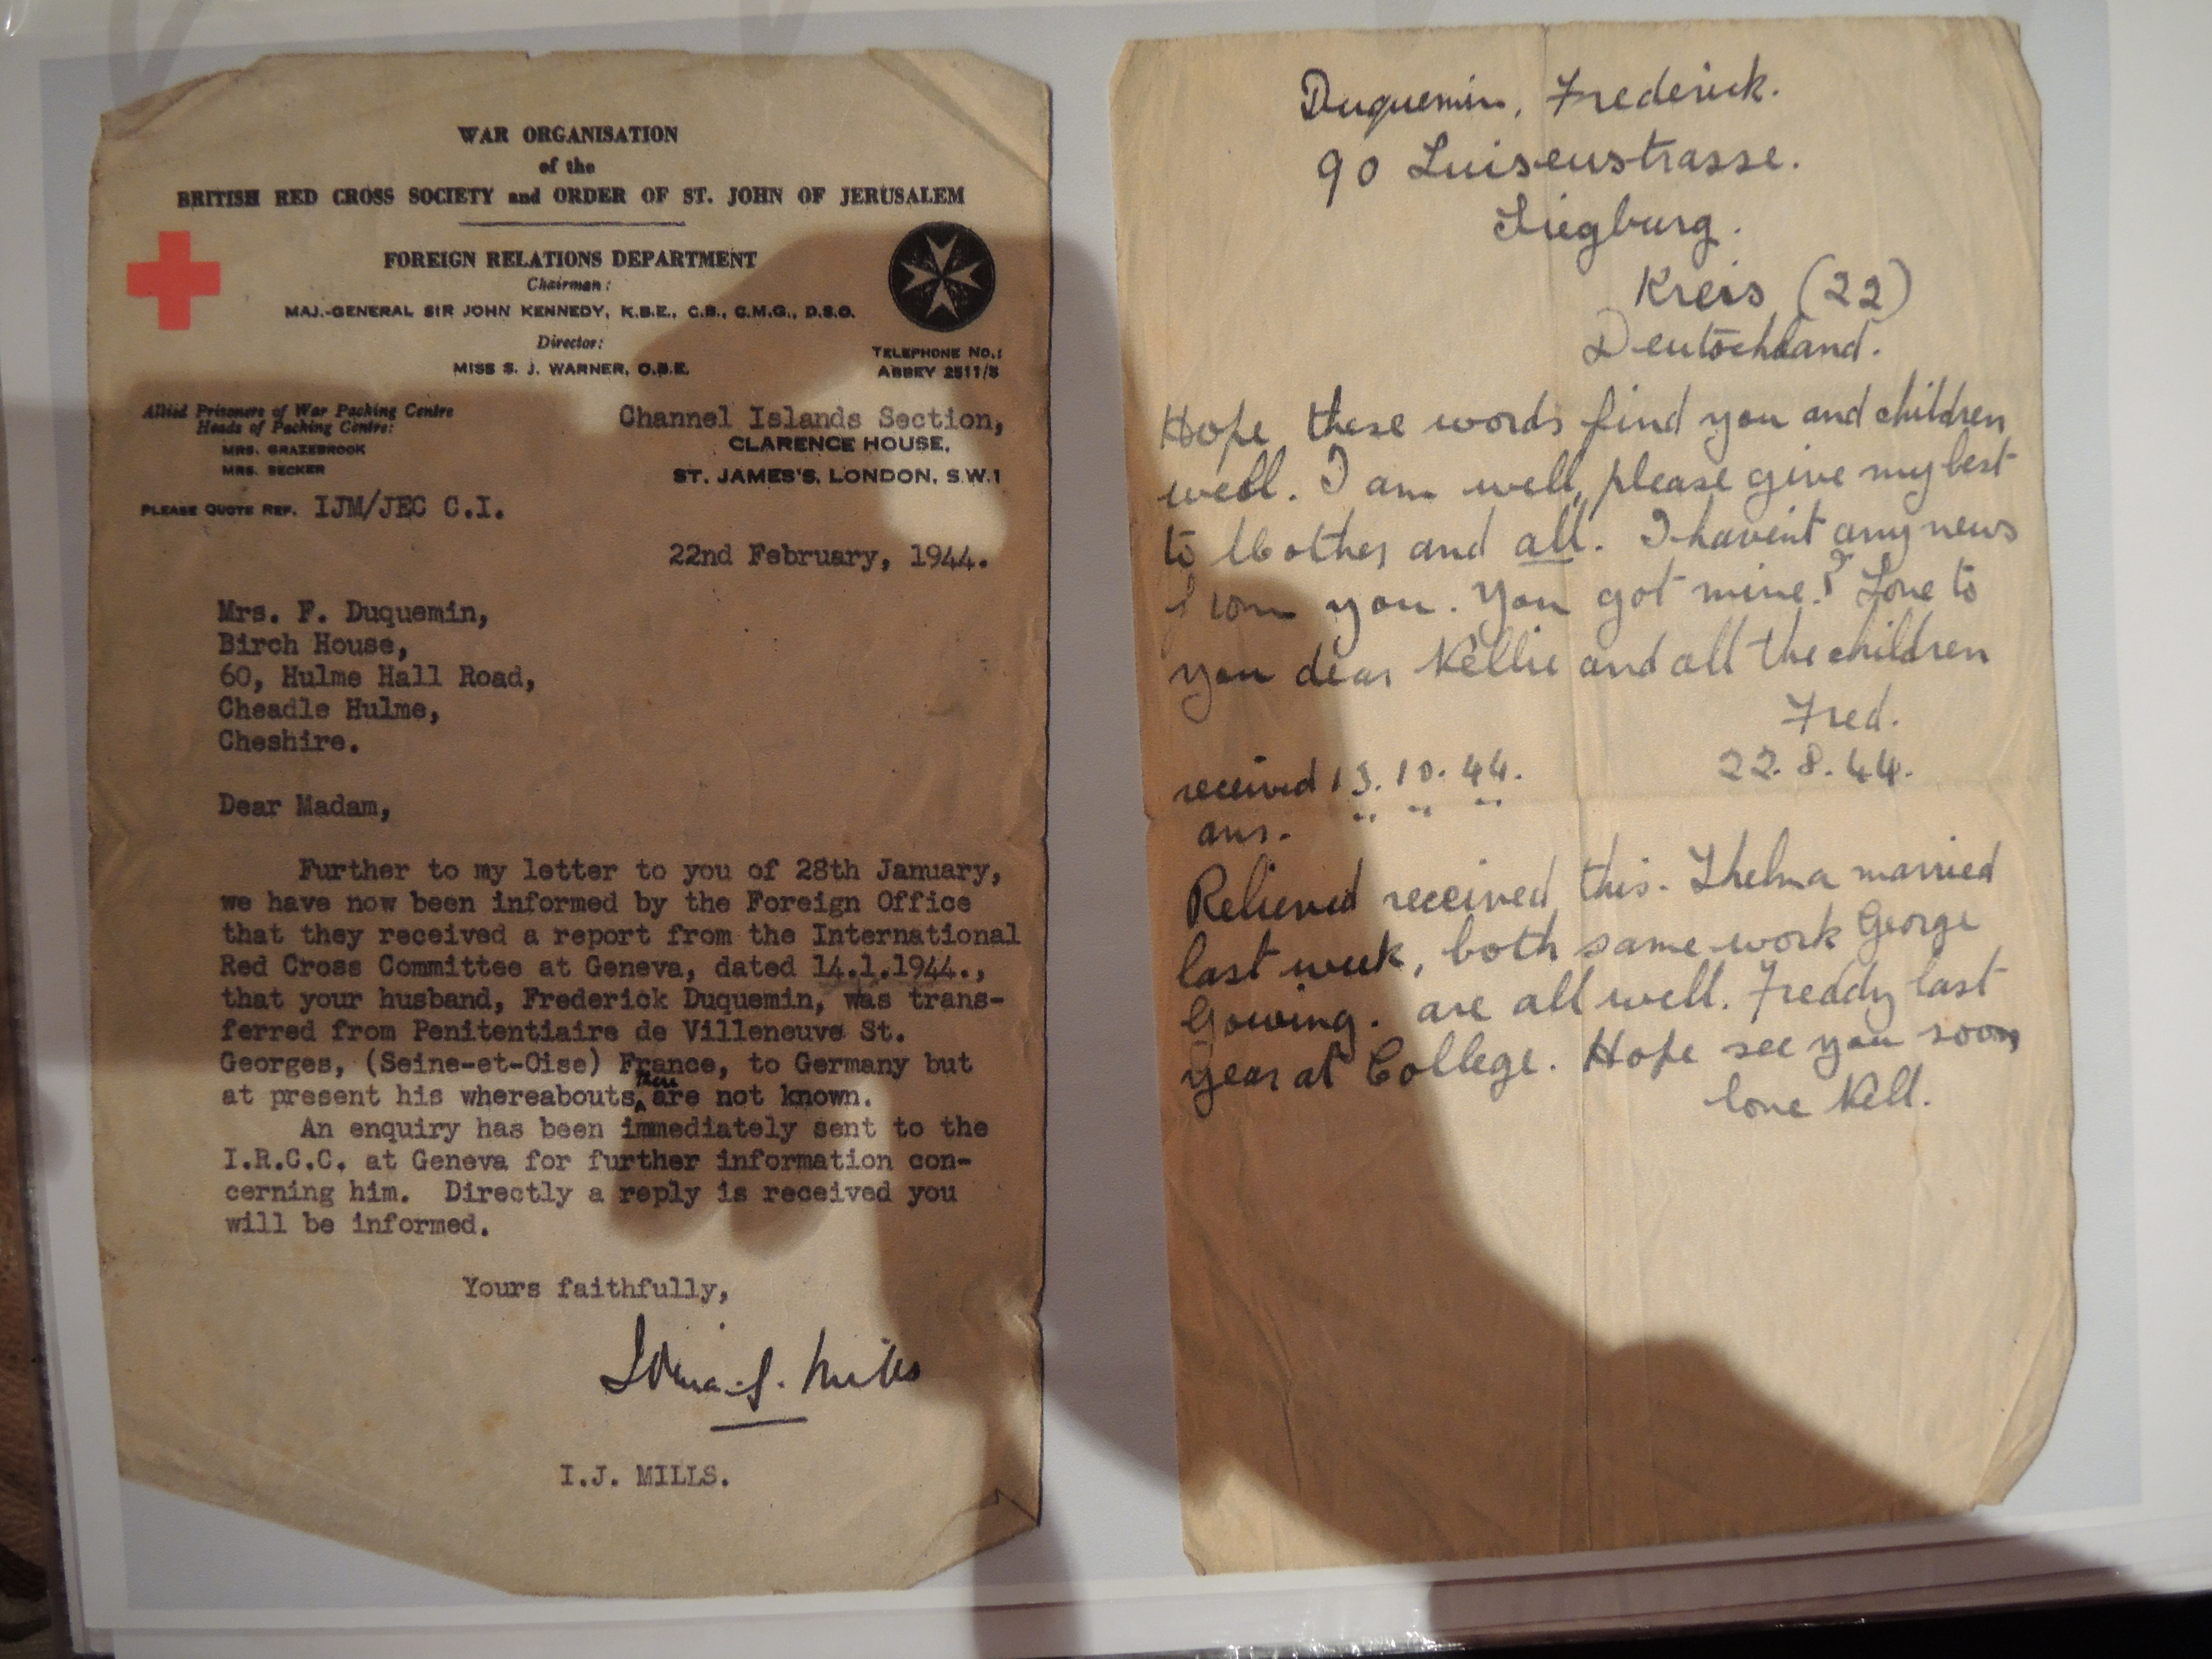 WAR ORGANISATION
of the
BRITISH RED CROSS SOCIETY and ORDER OF ST. JOHN OF JERUSALEM
FOREIGN RELATIONS DEPARTMENT
Chairman:
MAJ.-GENERAL SIR JOHN KENNEDY, K.B.E., C.B., C.M.G., D.S.O.
Director:
MISS S. J. WARNER, O.B.E.
TELEPHONE NO.:
ABBEY 2511/5
Allied Prisoners of War Packing Centre
Heads of Packing Centre:
MRS. GRAZEBROOK
MRS. BECKER
PLEASE QUOTE REF. IJM/JEC C.I.
Channel Islands Section,
CLARENCE HOUSE,
ST. JAMES'S, LONDON, S.W.1
22nd February, 1944.
Mrs. F. Duquemin,
Birch House,
60, Hulme Hall Road,
Cheadle Hulme,
Cheshire.
Dear Madam,
Further to my letter to you of 28th January,
we have now been informed by the Foreign Office
that they received a report from the International
Red Cross Committee at Geneva, dated 14.1.1944.,
that your husband, Frederick Duquemin, was trans-
ferred from Penitentiaire de Villeneuve St.
Georges, (Seine-et-Oise) France, to Germany but
at present his whereabouts there are not known.
An enquiry has been immediately sent to the
I.R.C.C. at Geneva for further information con-
cerning him. Directly a reply is received you
will be informed.
Yours faithfully,
I.J. MILLS.
Duquemin, Frederick.
90 Luisenstrasse.
Siegburg.
Kreis (22)
Deutschland.
Hope these words find you and children
well. I am well, please give my best
to Mother and all. I havent any news
from you. You got mine? Love to
you dear Nellie and all the children
Fred.
22.8.44.
received 13.10.44.
ans. " " "
Relieved received this. Thelma married
last week, both same work George
Gowing. are all well. Freddy last
year at College. Hope see you soon,
love Nell.